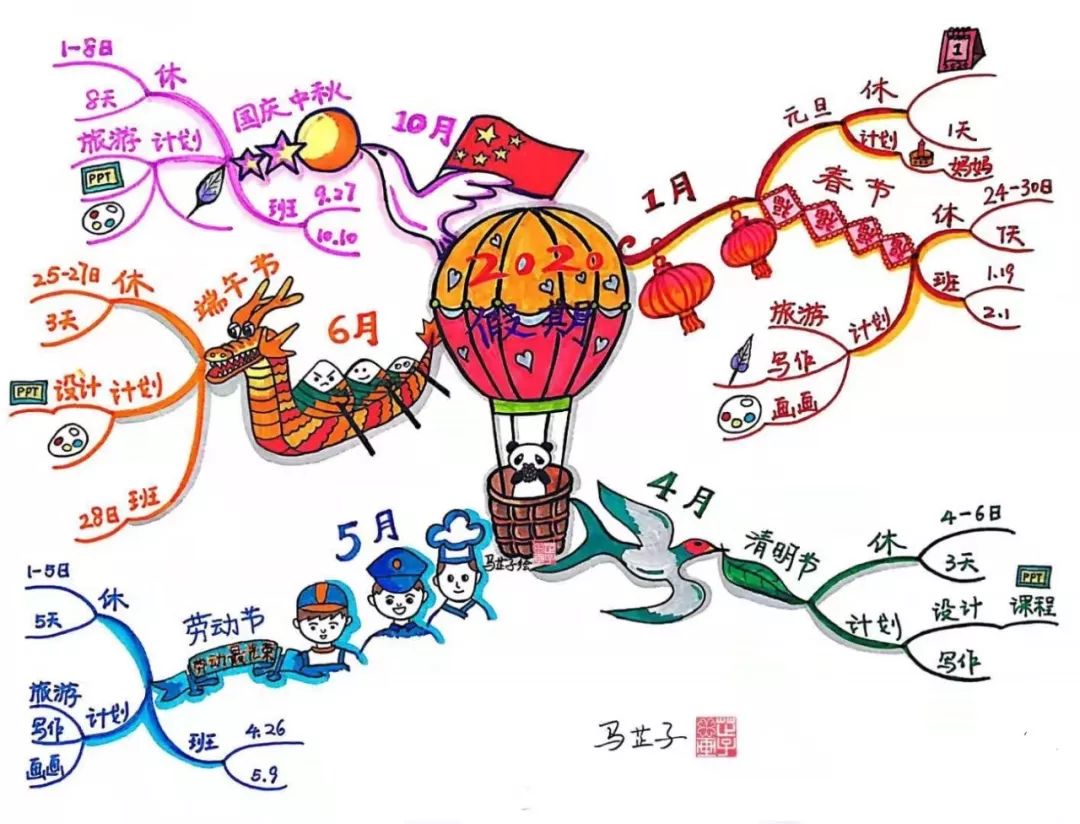 2020
假期
马芷子绘
1月
元旦
休
1
1天
计划
妈妈
春节
休
24-30日
7天
班
1.19
2.1
计划
旅游
写作
画画
4月
清明节
休
4-6日
3天
计划
设计
PPT
课程
写作
5月
劳动节
劳动最光荣
休
1-5日
5天
计划
旅游
写作
画画
班
4.26
5.9
6月
端午节
休
25-27日
3天
计划
设计
PPT
班
28日
10月
国庆中秋
休
1-8日
8天
计划
旅游
PPT
班
9.27
10.10
马芷子